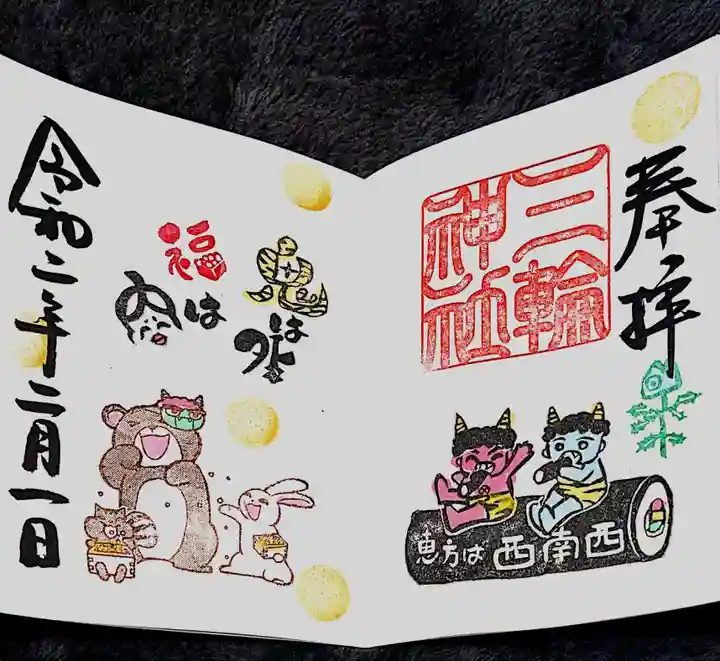 奉拝
三輪
神社
恵方は 西南西
鬼は
外
福は
内
令和二年二月一日